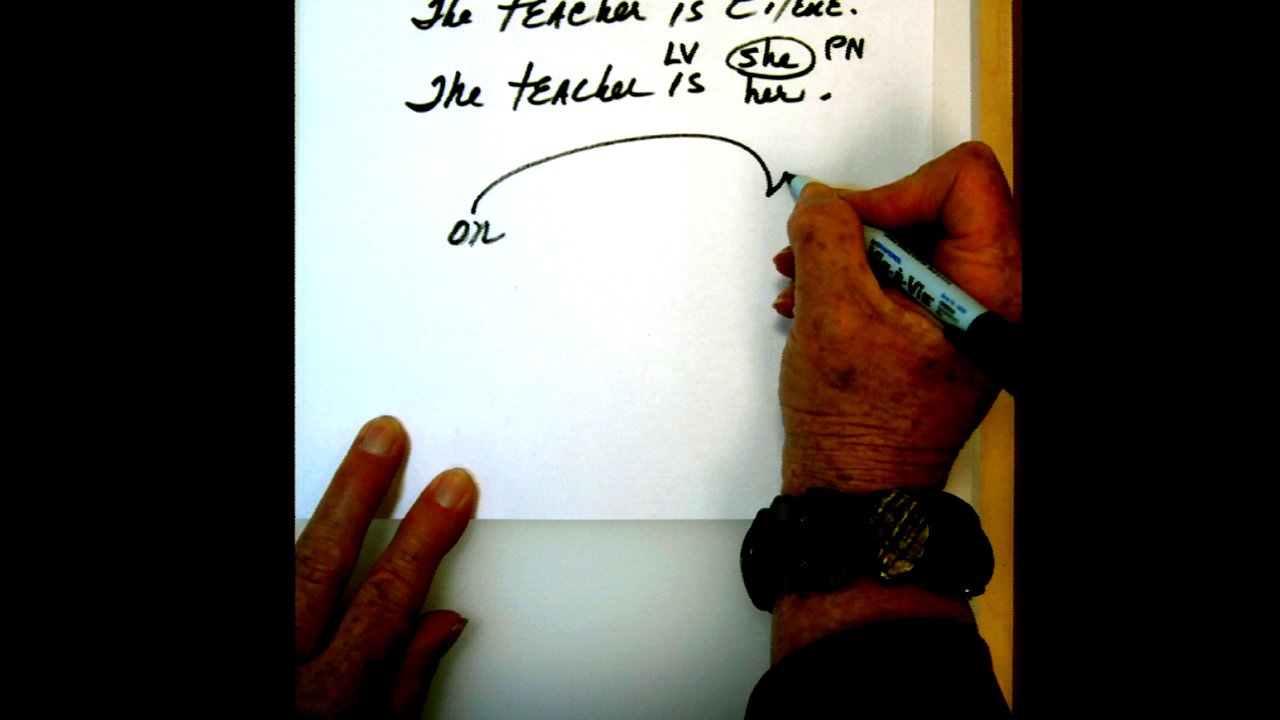 The teacher is
LV she PN
The teacher is her.
on
Vis-à-Vis